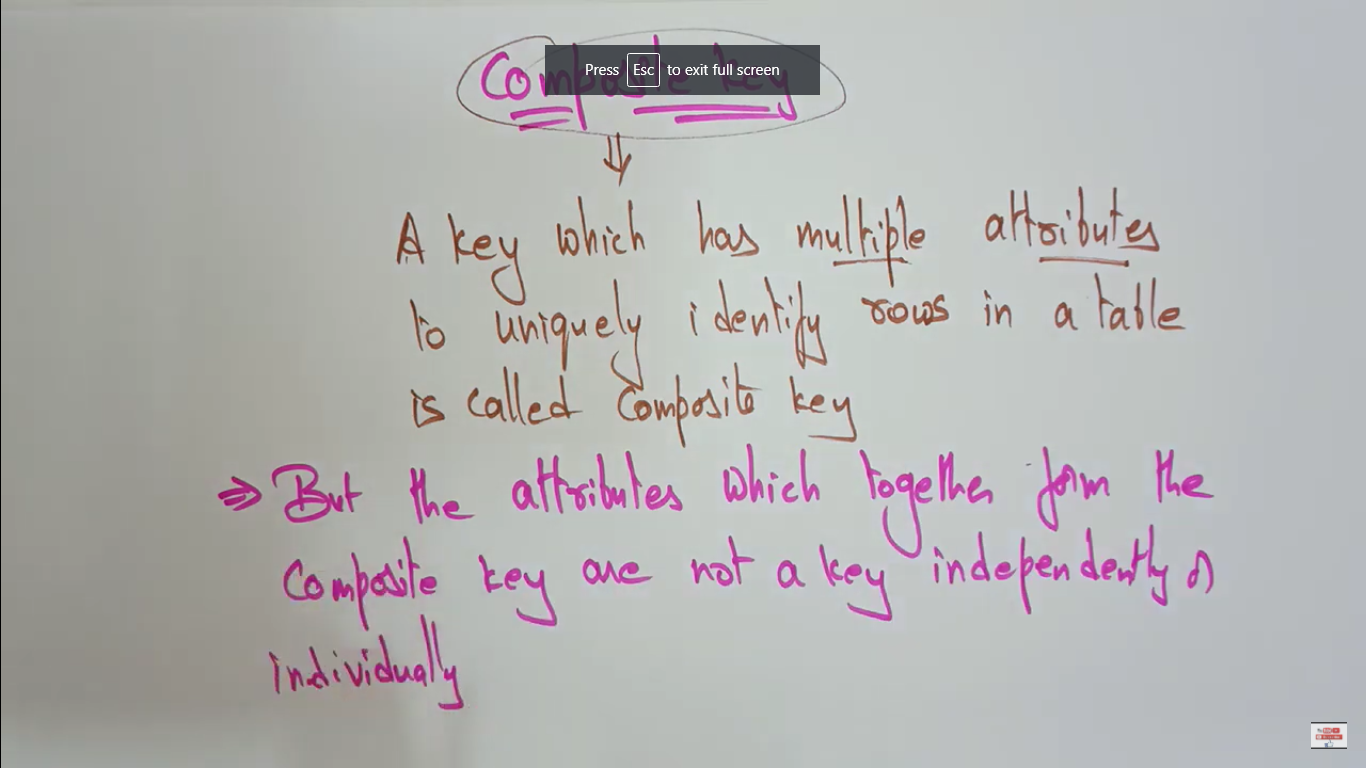 Composite key
Press Esc to exit full screen
A key which has multiple attributes
to uniquely identify rows in a table
is called Composite key
⇒ But the attributes which together form the
Composite key are not a key independently or
individually